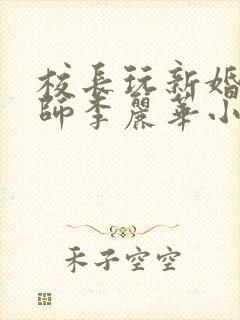 校長玩新婚
師李麗華小
禾子空空